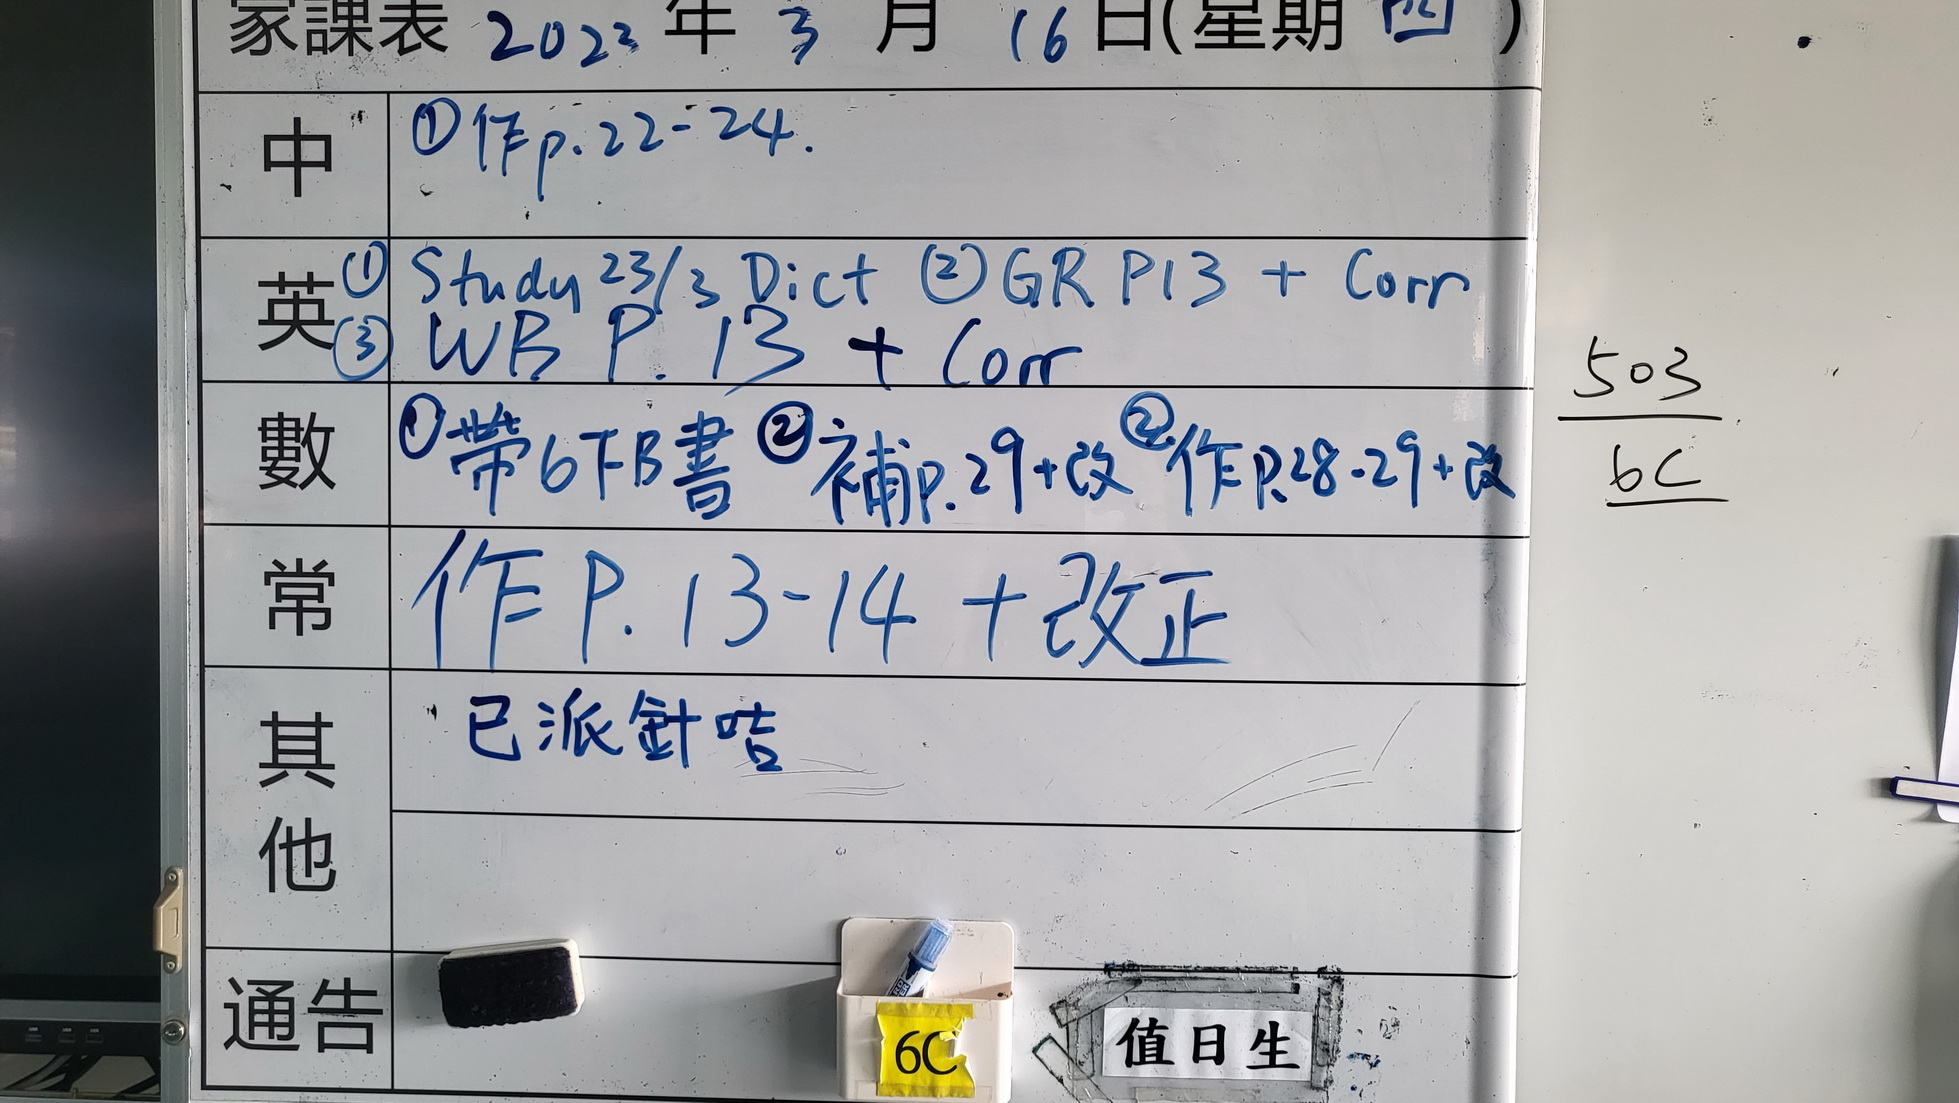 家課表 2023 年 3 月 16 日(星期 四 )
中 ①作p.22-24.
英 ① Study 23/3 Dict ②GR P13 + Corr
③ WB P. 13 + Corr
數 ①帶6下B書 ②補p.29+改 ②作P.28-29+改
常 作P. 13-14 +改正
其他 已派針咭
通告
6C
值日生
503
6C